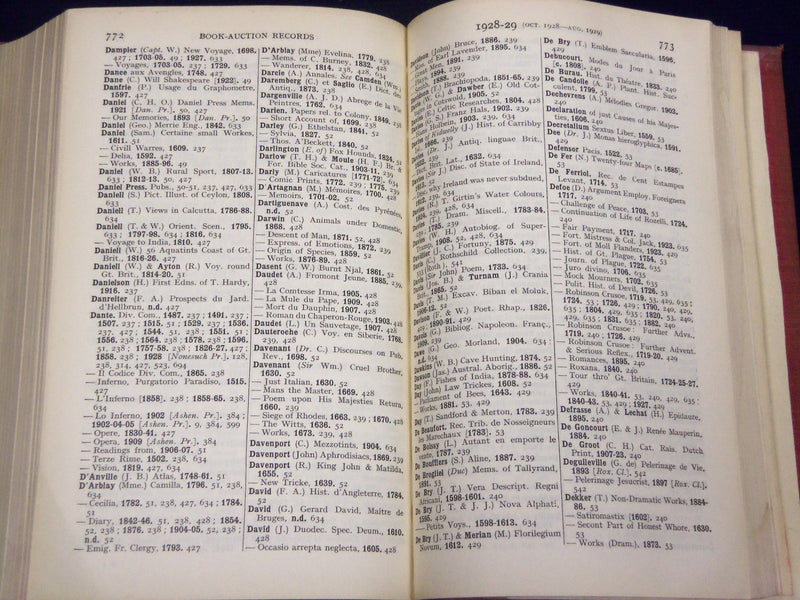 772 BOOK-AUCTION RECORDS
Dampier (Capt. W.) New Voyage, 1698,
427 ; 1703-05, 49 ; 1927, 633
— Voyages, 1703-05, 237 ; 1729, 633
Dance aux Avengles, 1748, 427
Dane (C.) Will Shakespeare [1922], 49
Danfrie (P.) Usage du Graphometre,
1597, 427
Daniel (C. H. O.) Daniel Press Mems,
1921 [Dan. Pr.], 50, 427
— Our Memories, 1893 [Dan. Pr.], 50
Daniel (Geo.) Merrie Eng., 1842, 633
Daniel (Sam.) Certaine small Workes,
1611, 51
— Civill Warres, 1609, 237
— Delia, 1592, 427
— Works, 1885-96, 49
Daniel (W. B.) Rural Sport, 1807-13,
633 ; 1812-13, 50, 427
Daniel Press. Pubs., 50-51, 237, 427, 633
Daniell (S.) Pict. Illust. of Ceylon, 1808,
633
Daniell (T.) Views in Calcutta, 1786-88,
634
Daniell (T. & W.) Orient. Scen., 1795,
633 ; 1797-98, 634 ; 1816, 634
— Voyage to India, 1810, 427
Daniell (W.) 56 Aquatints Coast of Gt.
Brit., 1816-26, 427
Daniell (W.) & Ayton (R.) Voy. round
Gt. Brit., 1814-20, 51
Danielson (H.) First Edns. of T. Hardy,
1916, 237
Danreiter (F. A.) Prospects du Jard.
d'Hellbrun, n.d. 427
Dante. Div. Com., 1487, 237 ; 1491, 237 ;
1507, 237 ; 1515, 51 ; 1529, 237 ; 1536,
237, 427 ; 1544, 51 ; 1551, 51 ;
1556, 238 ; 1564, 238 ; 1578, 238 ; 1596,
51, 238 ; 1757-58, 238 ; 1826-27, 427 ;
1858, 238 ; 1928 [Nonesuch Pr.], 128,
238, 314, 427, 523, 694
— Il Codice Div. Com., 1865, 238
— Inferno, Purgatorio Paradiso, 1515,
427
— L'Inferno [1858], 238 ; 1858-65, 238,
634
— Lo Inferno, 1902 [Ashen. Pr.], 384 ;
1902-04-05 [Ashen. Pr.], 9, 384, 599
— Opere, 1830-41, 427
— Opera, 1909 [Ashen. Pr.], 384
— Readings from, 1906-07, 51
— Terze Rime, 1502, 238, 634
— Vision, 1819, 427, 634
D'Anville (J. B.) Atlas, 1748-61, 51
D'Arblay (Mme.) Camilla, 1796, 51, 238,
634
— Cecilia, 1782, 51, 238, 427, 634 ; 1784,
51
— Diary, 1842-46, 51, 238, 428 ; 1854,
52, 238 ; 1876, 238 ; 1904-05, 52, 238 ;
n.d. 52
— Emig. Fr. Clergy, 1793, 427
D'Arblay (Mme) Evelina, 1779, 238
— Mems. of C. Burney, 1832, 428
— Wanderer, 1814, 238, 428, 634
Darcie (A.) Annales. See Camden (Wm.)
Daremberg (C.) et Saglio (E.) Dict. des
Antiq., 1873, 238
Dargenville (A. J. D.) Abrege de la Vie
Peintres, 1762, 634
Darien, Papers rel. to Colony, 1849, 238
— Short Account of, 1699, 238
Darley (G.) Ethelstan, 1841, 52
— Sylvia, 1827, 52
— Thos. A'Beckett, 1840, 52
Darlington (E. of) Fox Hounds, 1824, 52
Darlow (T. H.) & Moule (H. F.) Br. &
For. Bible Soc. Cat., 1903-11, 239
Darly (M.) Caricatures [1771-75], 634
— Comic Prints, 1772, 239 ; 1775, 634
D'Artagnan (M.) Mémoires, 1700, 428
— Memoirs, 1701-02, 52
Dartiguenave (A.) Cost. des Pyrénées,
n.d. 52
Darwin (C.) Animals under Domestic,
1868, 428
— Descent of Man, 1871, 52, 428
— Express. of Emotions, 1872, 239
— Origin of Species, 1859, 52
— Works, 1876-89, 428
Dasent (G. W.) Burnt Njal, 1861, 52
Daudet (A.) Fromont Jeune, 1885, 239,
428
— La Comtesse Irma, 1905, 428
— La Mule du Pape, 1909, 428
— Mort du Dauphin, 1907, 428
— Roman du Chaperon-Rouge, 1903, 428
Daudet (L.) Un Sauvetage, 1907, 428
Dauteroche (C.) Voy. en Siberie, 1768,
239, 428
Davenant (Dr. C.) Discourses on Pub.
Rev., 1698, 52
Davenant (Sir Wm.) Cruel Brother,
1630, 52
— Just Italian, 1630, 52
— Mans the Master, 1669, 428
— Poem upon His Majesties Return,
1660, 239
— Siege of Rhodes, 1663, 239 ; 1670, 428
— The Witts, 1636, 52
— Works, 1673, 239, 428
Davenport (C.) Mezzotints, 1904, 634
Davenport (John) Aphrodisiacs, 1869, 239
Davenport (R.) King John & Matilda,
1655, 52
— New Tricke, 1639, 52
David (F. A.) Hist. d'Angleterre, 1784,
52
David (G.) Gerard David, Maitre de
Bruges, n.d. 634
David (J.) Duodec. Spec. Deum., 1610,
428
— Occasio arrepta neglecta, 1605, 428
1928-29 (OCT. 1928—AUG. 1929) 773
(John) Bruce, 1886, 239
of Earl Lavender, 1895, 634
Men, 1891, 239
1894, 239
1888, 239
(T.) Brachiopoda, 1851-65, 239
(W. G.) & Dawber (E.) Old Cot-
Cotswold, 1905, 52
Celtic Researches, 1804, 428
(G. S.) Franz Hals, 1902, 239
1903, 239, 634
Kidwelly (J.) Hist. of Carribby
1666, 239
(Dr. J.) Antiq. linguae Brit.,
Lat., 1632, 634
(Sir J.) Disc. of State of Ireland,
why Ireland was never subdued,
T. Girtin's Water Colours,
239, 428, 634
Dram. Miscell., 1783-84,
1785, 239
(W. H.) Autobiog. of Super-
Tramp, 1908, 52, 428, 634
(J. C.) Fortuny, 1875, 429
(C.) Rothschild Collection, 239,
(Roth.), 541
(John) Poem, 1733, 634
(Jos. B.) & Turnam (J.) Crania
Brit., 1865, 52
(T. M.) Excav. Biban el Moluk,
1906-12, 52
(F. & W.) Poet. Rhap., 1826,
1890-91, 429
(G.) Bibliog. Napoleon. Franç.,
(G.) Geo. Morland, 1904, 634 ;
n.d. 634
Dawkins (W. B.) Cave Hunting, 1874, 52
Dawson (Jas.) Austral. Aborig., 1886, 52
Day (F.) Fishes of India, 1878-88, 634
Day (John) Law Trickes, 1608, 52
— Parliament of Bees, 1643, 429
— Works, 1881, 53, 429
Day (T.) Sandford & Merton, 1783, 239
De Beaufort. Rec. Trib. de Nosseigneurs
les Mareschaux [1783], 53
De Boissy (L.) Autant en emporte le
vente, 1787, 239
De Boufflers (S.) Aline, 1887, 239
De Broglie (Duc) Mems. of Talleyrand,
1891, 53
De Bry (J. T.) Vera Descript. Regni
Africani, 1598-1601, 240
De Bry (J. T. & J. J.) Nova Alphati,
1595, 429
— Petits Voys., 1598-1613, 634
De Bry (J. T.) & Merian (M.) Florilegium
Novum, 1612, 429
De Bry (T.) Emblem Saecularia, 1596,
429
Debucourt. Modes du Jour à Paris
[c. 1808], 240
De Burau. Hist. du Théatre, 1833, 240
De Candolle (A. P.) Plant. Hist. Suc-
culent, 1799, 53
Decherevns (A.) Mélodies Gregor, 1902,
Declaration of just Causes of his Majes-
ties, 1606, 240
Decretalium Sextus Liber, 1559, 53
Dee (Dr. J.) Monas hieroglyphica, 1591,
429
Defensor Pacis, 1522, 53
De Fer (N.) Twenty-four Maps [c. 1685],
53
De Ferriol. Rec. de Cent Estampes
Levant, 1714, 53
Defoe (D.) Argument Employ. Foreigners
1717, 240
— Challenge of Peace, 1705, 53
— Continuation of Life of Rozelli, 1724,
240
— Fair Payment, 1717, 240
— Fort. Mistress & Col. Jack, 1923, 635
— Fort. of Moll Flanders, 1923, 429
— Hist. of Gt. Plague, 1754, 53
— Journ. of Plague, 1722, 635
— Juro divino, 1706, 635
— Mock Mourners, 1702, 635
— Polit. Hist. of Devil, 1726, 53
— Robinson Crusoe, 1719, 53, 429, 635 ;
1724, 53 ; 1726, 429 ; 1790, 429, 429,
635 ; 1804, 429, 635 ; 1820, 53, 240,
429, 635 ; 1831, 635 ; 1882, 240
— Robinson Crusoe : Further Advs.,
1719, 240 ; 1726, 429
— Robinson Crusoe : Further Advent.
& Serious Reflex., 1719-20, 429
— Romances, 1895, 240
— Roxana, 1840, 240
— Tour thro' Gt. Britain, 1724-25-27,
429
— Works, 1840-41, 53, 240, 429, 635 ;
1840-43, 53, 429 ; 1927, 429
Defrasse (A.) & Lechat (H.) Epidaure,
1895, 240
De Goncourt (E. & J.) Renée Mauperin,
1884, 240
De Groot (C. H.) Cat. Rais. Dutch
Print, 1907-23, 240
Degulleville (G. de) Pelerinage de Vie,
1893 [Rox. Cl.], 542
— Pelerinage Jesucrist, 1897 [Rox. Cl.],
542
Dekker (T.) Non-Dramatic Works, 1884-
86, 53
— Satiromastix [1602], 240
— Second Part of Honest Whore, 1630,
53
— Works (Dram.), 1873, 53